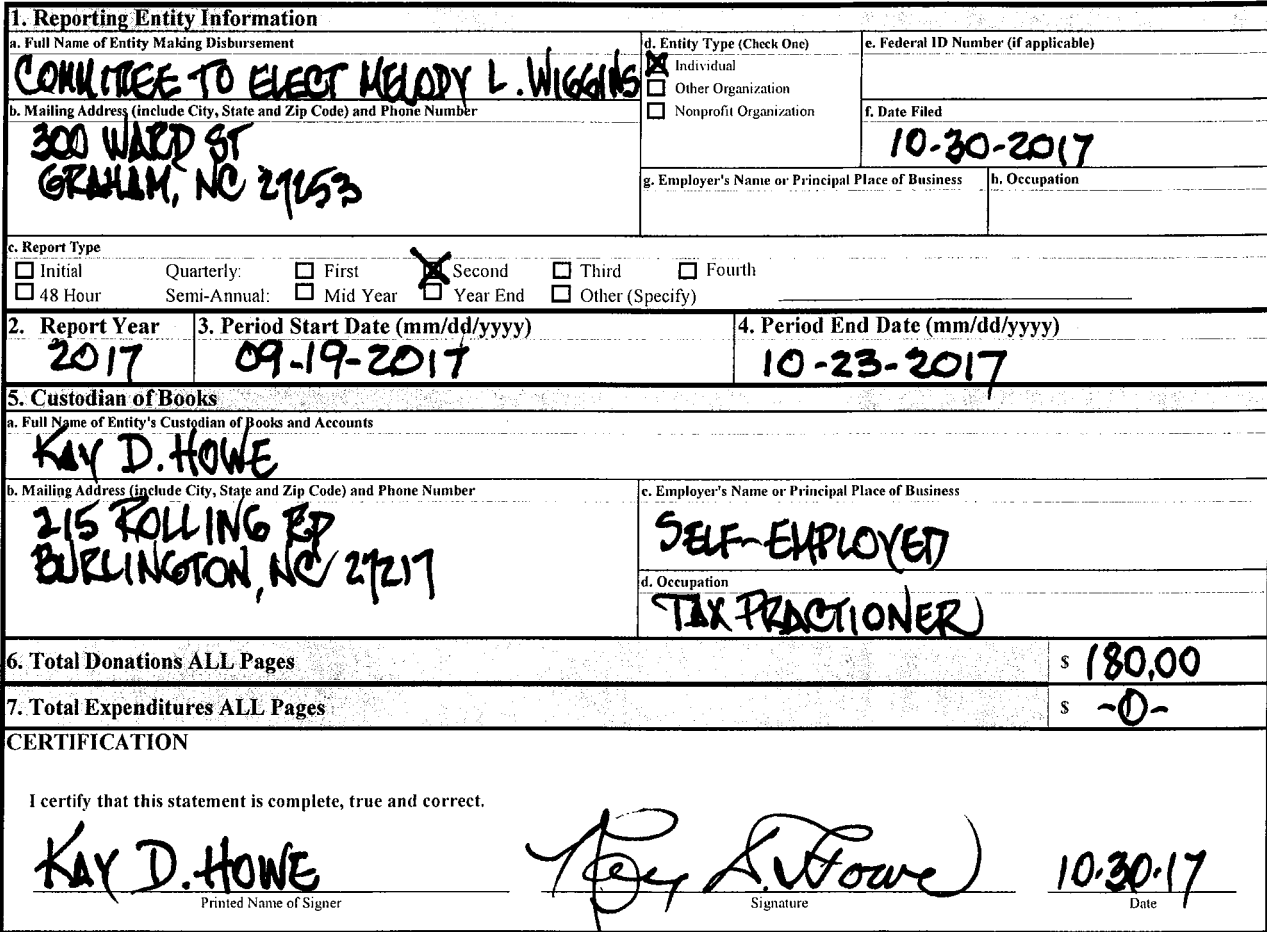 1. Reporting Entity Information
a. Full Name of Entity Making Disbursement
COMMITEE TO ELECT MELODY L. WIGGINS
d. Entity Type (Check One)
Individual
Other Organization
Nonprofit Organization
e. Federal ID Number (if applicable)
b. Mailing Address (include City, State and Zip Code) and Phone Number
300 WARD ST
GRAHAM, NC 27253
f. Date Filed
10-30-2017
g. Employer's Name or Principal Place of Business
h. Occupation
c. Report Type
Initial Quarterly: First Second Third Fourth
48 Hour Semi-Annual: Mid Year Year End Other (Specify)
2. Report Year
2017
3. Period Start Date (mm/dd/yyyy)
09-19-2017
4. Period End Date (mm/dd/yyyy)
10-23-2017
5. Custodian of Books
a. Full Name of Entity's Custodian of Books and Accounts
KAY D. HOWE
b. Mailing Address (include City, State and Zip Code) and Phone Number
215 ROLLING RD
BURLINGTON, NC 27217
c. Employer's Name or Principal Place of Business
SELF-EMPLOYED
d. Occupation
TAX PRACTIONER
6. Total Donations ALL Pages $ 180.00
7. Total Expenditures ALL Pages $ -0-
CERTIFICATION
I certify that this statement is complete, true and correct.
KAY D. HOWE Kay D. Howe 10.30.17
Printed Name of Signer Signature Date